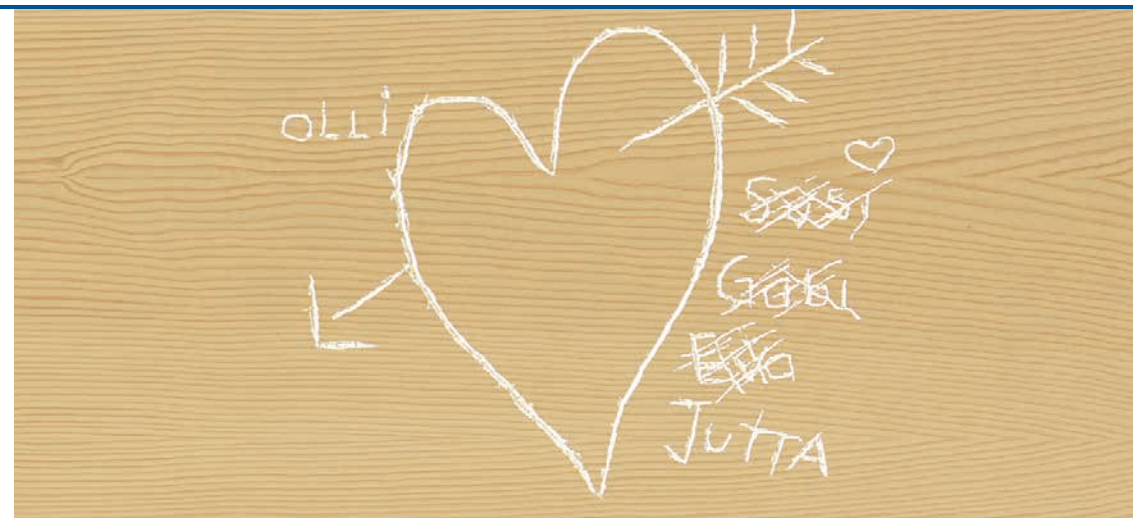 OLLi
Susi
Gabi
JUTTA